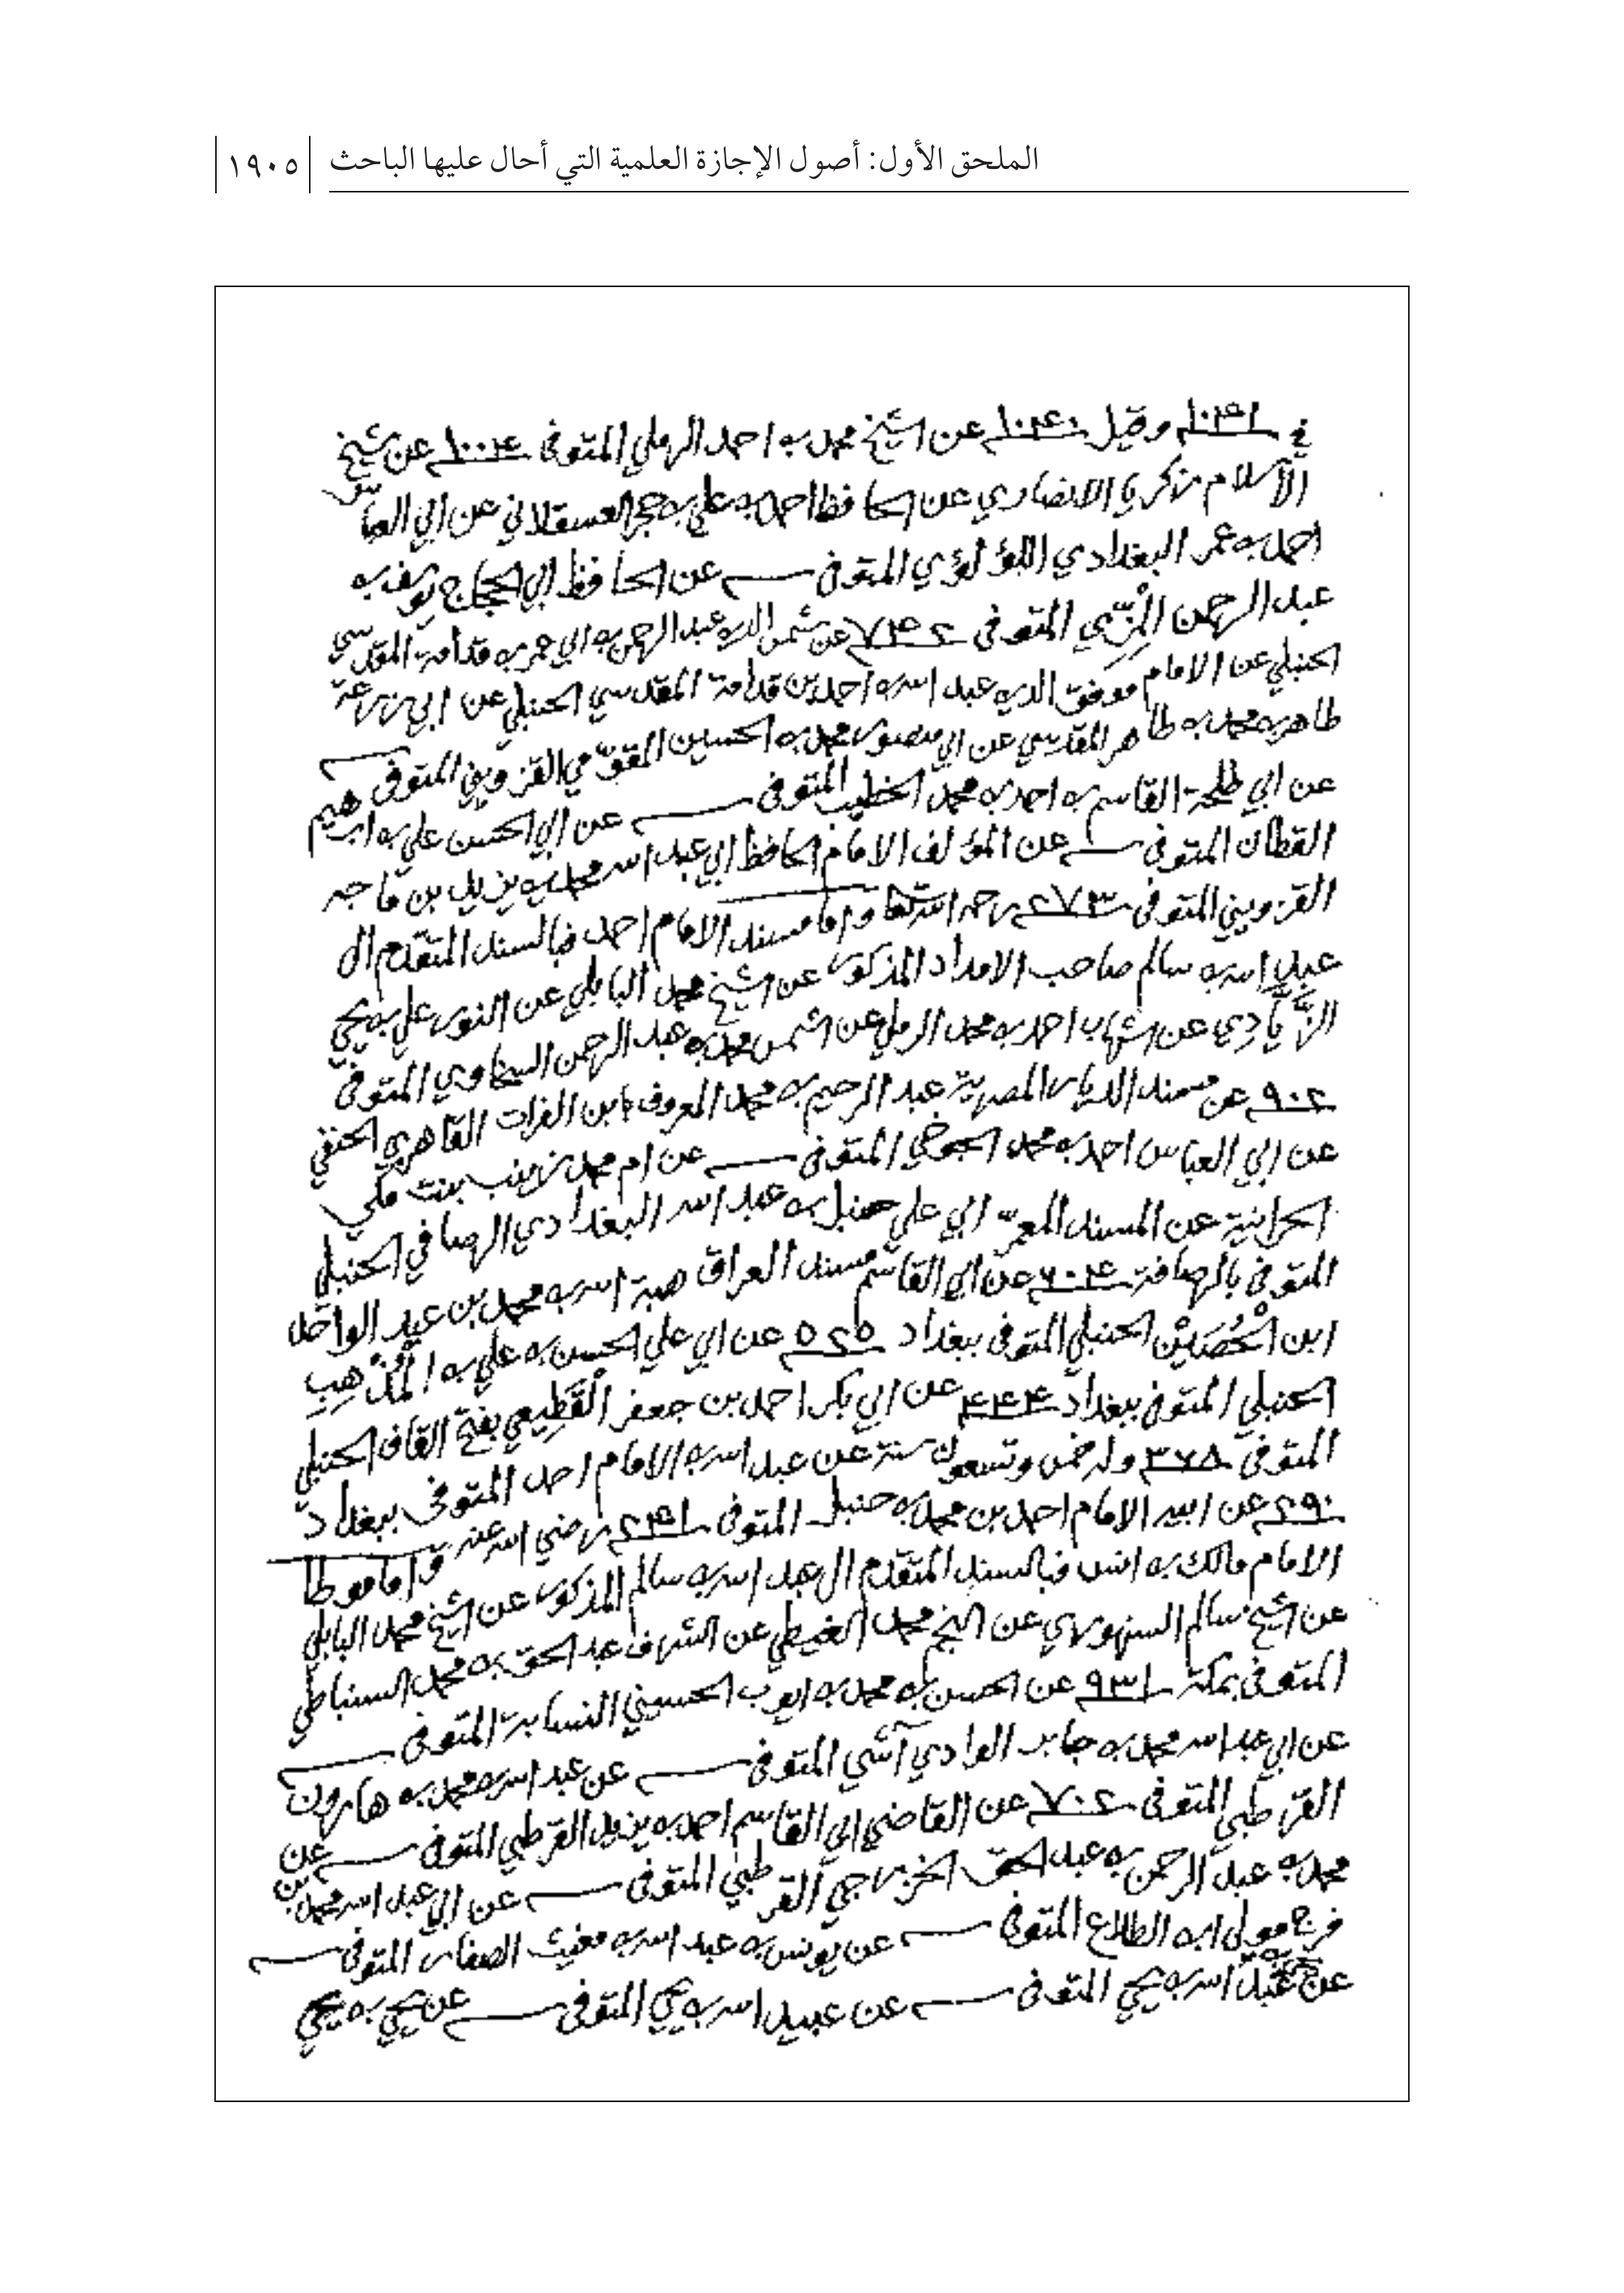 الملحق الأول: أصول الإجازة العلمية التي أحال عليها الباحث ١٩٠٥
في ١٠٤١ وقيل ١٠٤٠ عن الشيخ محمد به احمد الرملي المتوفى ١٠٠٤ عن شيخ
الاسلام زكريا الانصاري عن الحافظ احمد به علي به حجر العسقلاني عن ابي العباس
احمد به عمر البغدادي اللؤلؤي المتوفى عن الحافظ ابي الحجاج يوسف به
عبد الرحمن المِزّي المتوفى ٧٤٢ عن شمس الديه عبد الرحمن به ابي عمر به قدامة المقدسي
الحنبلي عن الامام موفق الديه عبد الله به احمد بن قدامة المقدسي الحنبلي عن ابي زرعة
طاهر به محمد به طاهر المقدسي عن ابي منصور محمد به الحسين المقوّمي القزويني المتوفى
عن ابي طلحة القاسم به احمد به محمد الخطيب المتوفى عن ابي الحسن علي به ابراهيم
القطان المتوفى عن المؤلف الامام الحافظ ابي عبد الله محمد به يزيد بن ماجه
القزويني المتوفى ٢٧٣ رحمه الله تعالى واما مسند الامام احمد فبالسند المتقدم الى
عبد الله به سالم صاحب الامداد المذكور عن الشيخ محمد البابلي عن النور علي به يحيى
الزَّيَّادِي عن الشهاب احمد به محمد الرملي عن الشمس محمد به عبد الرحمن السخاوي المتوفى
٩٠٢ عن مسند الديار المصرية عبد الرحيم به محمد المعروف بابن الفرات القاهري الحنفي
عن ابي العباس احمد به محمد الجوخي المتوفى عن ام محمد زينب بنت مكي
الحرانية عن المسند المعمر ابي علي حنبل به عبد الله البغدادي الرصافي الحنبلي
المتوفى بالرصافة ٦٠٤ عن ابي القاسم مسند العراق هبة الله به محمد بن عبد الواحد
ابن الْحُصَيْن الحنبلي المتوفى ببغداد ٥٢٥ عن ابي علي الحسن به علي به الْمُذْهِب
الحنبلي المتوفى ببغداد ٤٤٤ عن ابي بكر احمد بن جعفر الْقَطِيعي بفتح القاف الحنبلي
المتوفى ٣٦٨ وله خمس وتسعون سنة عن عبد الله به الامام احمد المتوفى ببغداد
٢٩٠ عن ابيه الامام احمد بن محمد به حنبل المتوفى ٢٤١ رضي الله عنه واما موطا
الامام مالك به انس فبالسند المتقدم الى عبد الله به سالم المذكور عن الشيخ محمد البابلي
عن الشيخ سالم السنهوري عن النجم محمد الغيطي عن الشرف عبد الحق به محمد السنباطي
المتوفى بمكة ٩٣١ عن الحسن به محمد به ايوب الحسيني النسابة المتوفى
عن ابي عبد الله محمد به جابر الوادي آشي المتوفى عن عبد الله به محمد به هارون
القرطبي المتوفى ٧٠٢ عن القاضي ابي القاسم احمد به يزيد القرطبي المتوفى عن
محمد به عبد الرحمن به عبد الحق الخزرجي القرطبي المتوفى عن ابي عبد الله محمد بن
فرج مولى ابه الطلاع المتوفى عن يونس به عبد الله به مغيث الصفار المتوفى
عن الله به يحيى المتوفى عن عبيد الله به يحيى المتوفى عن يحيى به يحيى